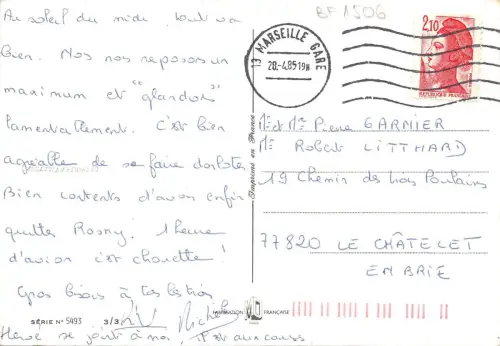 Au soleil du midi, tout va
bien. Nos nos reposons un
maximum et "glandons"
lamentablement. C'est bien
agréable de se faire dorloter
Bien contents d'avoir enfin
quitter Rosny! 1 heure
d'avion c'est chouette!
Gros bisous à tous les trois
Michel
Hervé se joint à nous, il est aux cours.
SÉRIE N° 5493 3/3
FABRICATION FRANÇAISE
Imprimé en France
BP 1506
13 MARSEILLE GARE
20-4.85 19H
2,10
REPUBLIQUE FRANÇAISE
Mr et Me Pierre GARNIER
Mr Robert LITTHARD
19 Chemin des trois Poulains
77820 LE CHÂTELET
EN BRIE